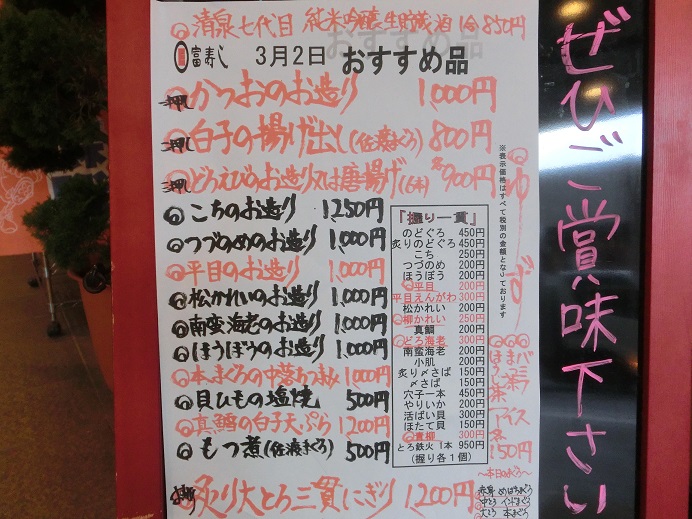 清泉七代目 純米吟醸生貯蔵酒 1合850円
富寿し 3月2日 おすすめ品
かつおのお造り 1,000円
白子の揚げ出し(佐渡まぐろ) 800円
どろえびのお造り又は唐揚げ(6本) 900円
こちのお造り 1,250円
つづのめのお造り 1,000円
平目のお造り 1,000円
松かれいのお造り 1,000円
南蛮海老のお造り 1,000円
ほうぼうのお造り 1,000円
本まぐろの中落ちつまみ 1,000円
貝ひもの塩焼 500円
真鱈の白子天ぷら 1200円
もつ煮(佐渡まぐろ) 500円
炙り大とろ三貫にぎり 1,200円
※表示価格はすべて税別の金額となっております
『握り一貫』
のどぐろ 450円
炙りのどぐろ 450円
こち 250円
つづのめ 200円
ほうぼう 200円
平目 200円
平目えんがわ 300円
松かれい 200円
柳かれい 250円
真鯛 200円
どろ海老 300円
南蛮海老 200円
小肌 200円
炙り〆さば 150円
〆さば 150円
穴子一本 450円
やりいか 200円
活ばい貝 300円
ほたて貝 150円
青柳 300円
とろ鉄火 1本 950円
(握り各1個)
ゆず
バニラ
まっ茶
ほうじ茶
アイス
各150円
〜本日のまぐろ〜
赤身 めばちまぐろ
中とろ
大とろ 本まぐろ
ぜひご賞味下さい